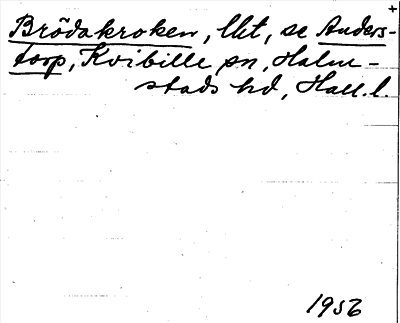 Brödakroken, lht, se Anders-
torp, Kvibille sn, Halm-
stads hd, Hall. l.
1956